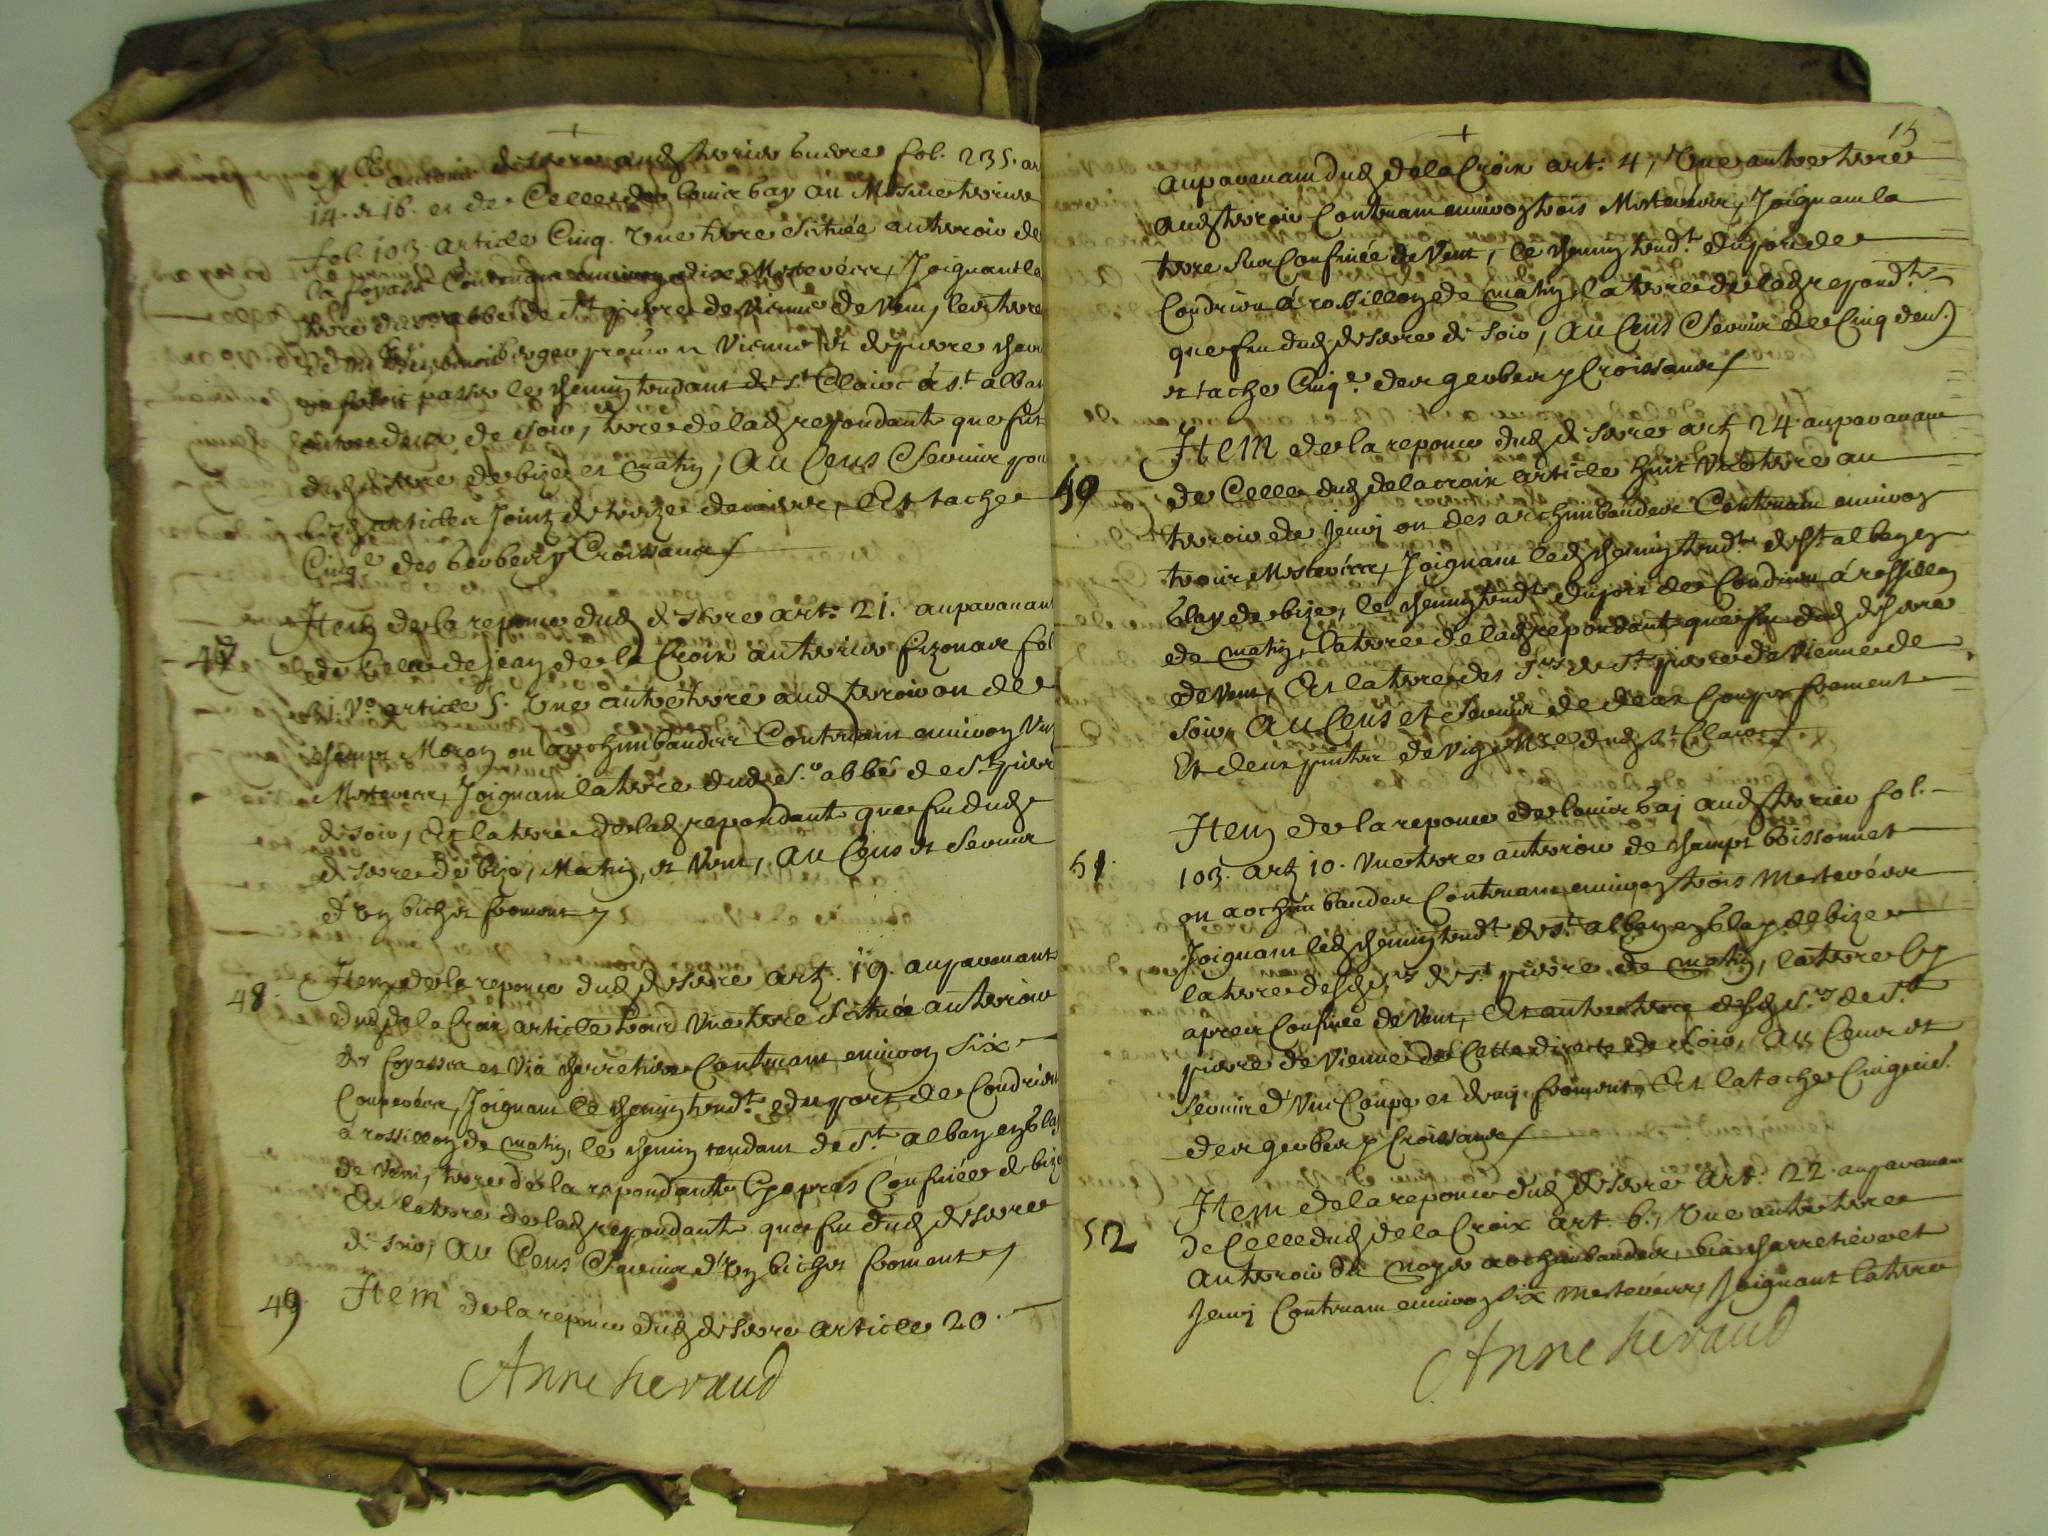 +
Mre antoine de serre aud terrier buivre fol. 235. ar
14. & 16. et de Celle de louis bay au Mesme terrier
fol. 103. article Cinq. Une terre Scituée au terroir de
la foyasse Contenant environ dix Mestevéees, Joignant la
terre du Sr. abbé de St pierre de Vienne de Vent, les terre
de Vienne et de pierre
passer le chemin tendant de St. Clair à St. alban
entre deux de soir, terre de lad respondante que fut
dud de serre de bize et matin, Au Cens Servis pour
articles Joint de treize deniers, Et tache
Cinqe. des gerbes y Croissant
47
Item de la reponce dud de serre art. 21. aupavanant
de Celle de jean de la Croix au terrier fizonar fol
61. Vo. article 5. Une autre terre aud terroir ou de
champs Moron ou archimbaudier Contenant environ Un
Mestevée, Joignant la terre dud Sr. abbé de St pierre
de soir, Et la terre de lad repondante que fut dud
de serre de bize, Matin, et Vent, Au Cens et Servis
d'un bichet froment
48.
Item de la reponce dud de serre art. 19. aupavenant
dud de la Croix article trois Une terre Scituée au terroir
de foyassa et Via Charretiere Contenant environ Six
Coupevéee, Joignant le chemin tendt. du port de Condrieu
à rossillon de matin, le chemin tendant de St alban en blay
de Vent, terre de la repondante Cy apres Confinée de bize
Et la terre de lad repondante que fut dud de serre
de soir, Au Cens Servis d'un bichet froment
49.
Item de la reponce dud de serre article 20.
Anne heraud
15
+
aupavenant dud de la Croix art. 4, Une autre terre
aud terroir Contenant environ trois Mestevéees, Joignant la
terre Sus Confinée de Vent, le chemin tendt. du port de
Condrieu à rossillon de matin, la terre de lad repondte
que fut dud de serre de soir, Au Cens Servis de Cinq den.
et tache Cinqe. des gerbes y Croissants
50
Item de la reponce dud de serre art 24. aupavanant
de Celle dud de la croix article huit Une terre au
terroir de Jenin ou des archimbaudes Contenant environ
trois Mestevéees, Joignant led chemin tendt. de St alban en
blay de bize, le chemin tendt. du port de Condrieu à rossillon
de matin, la terre de lad repondante que fut dud de serre
de Vent, Et la terre des Srs. de St. pierre de Vienne de
Soir, Au Cens et Servis de deux Coupes froment
Et deux de Vin Mre dud St Clair
51.
Item de la reponce de louis baj aud terrier fol.
103. art 10. Une terre au terroir de champs boissonnet
ou archimbaudes Contenant environ trois Mestevéees
Joignant led chemin tendt. de St. alban en blay de bize
la terre desd Srs de St. pierre de matin, la terre Cy
apres Confinée de Vent, Et autre terre desd Srs de St
pierre de Vienne de Cette directe de Soir, Au Cens et
Servis d'Une Coupe et demy froment, Et la tache Cinqeie.
des gerbes y Croissants
52
Item de la reponce dud de serre art. 22. aupavenant
de Celle dud de la Croix art. 6., Une autre terre
au terroir du noyer archimbaudes, bia charretiere et
Jenin Contenant environ Six Mestevéees, Joignant la terre
Anne heraud